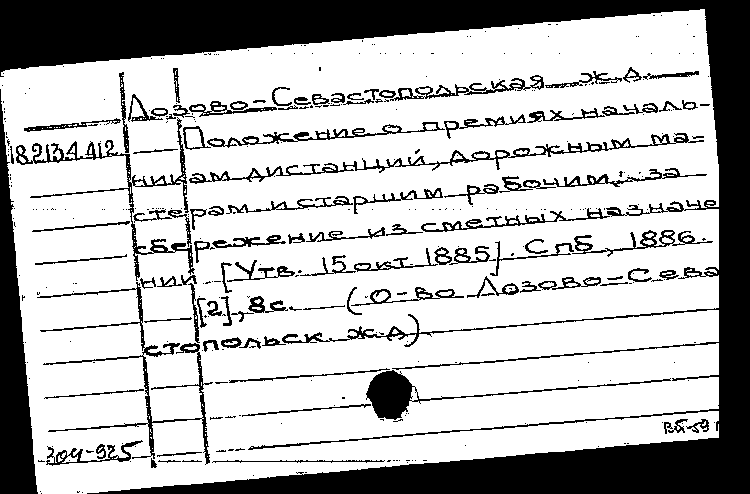 Лозово-Севастопольская ж.д.
18.213.4.412 Положение о премиях началь-
никам дистанций, дорожным ма-
стерам и старшим рабочим за
сбережение из сметных назначе
ний [Утв. 15 окт 1885]. Спб, 1886.
[2], 8с. (О-во Лозово-Сева
стопольск. ж.д)
304-925